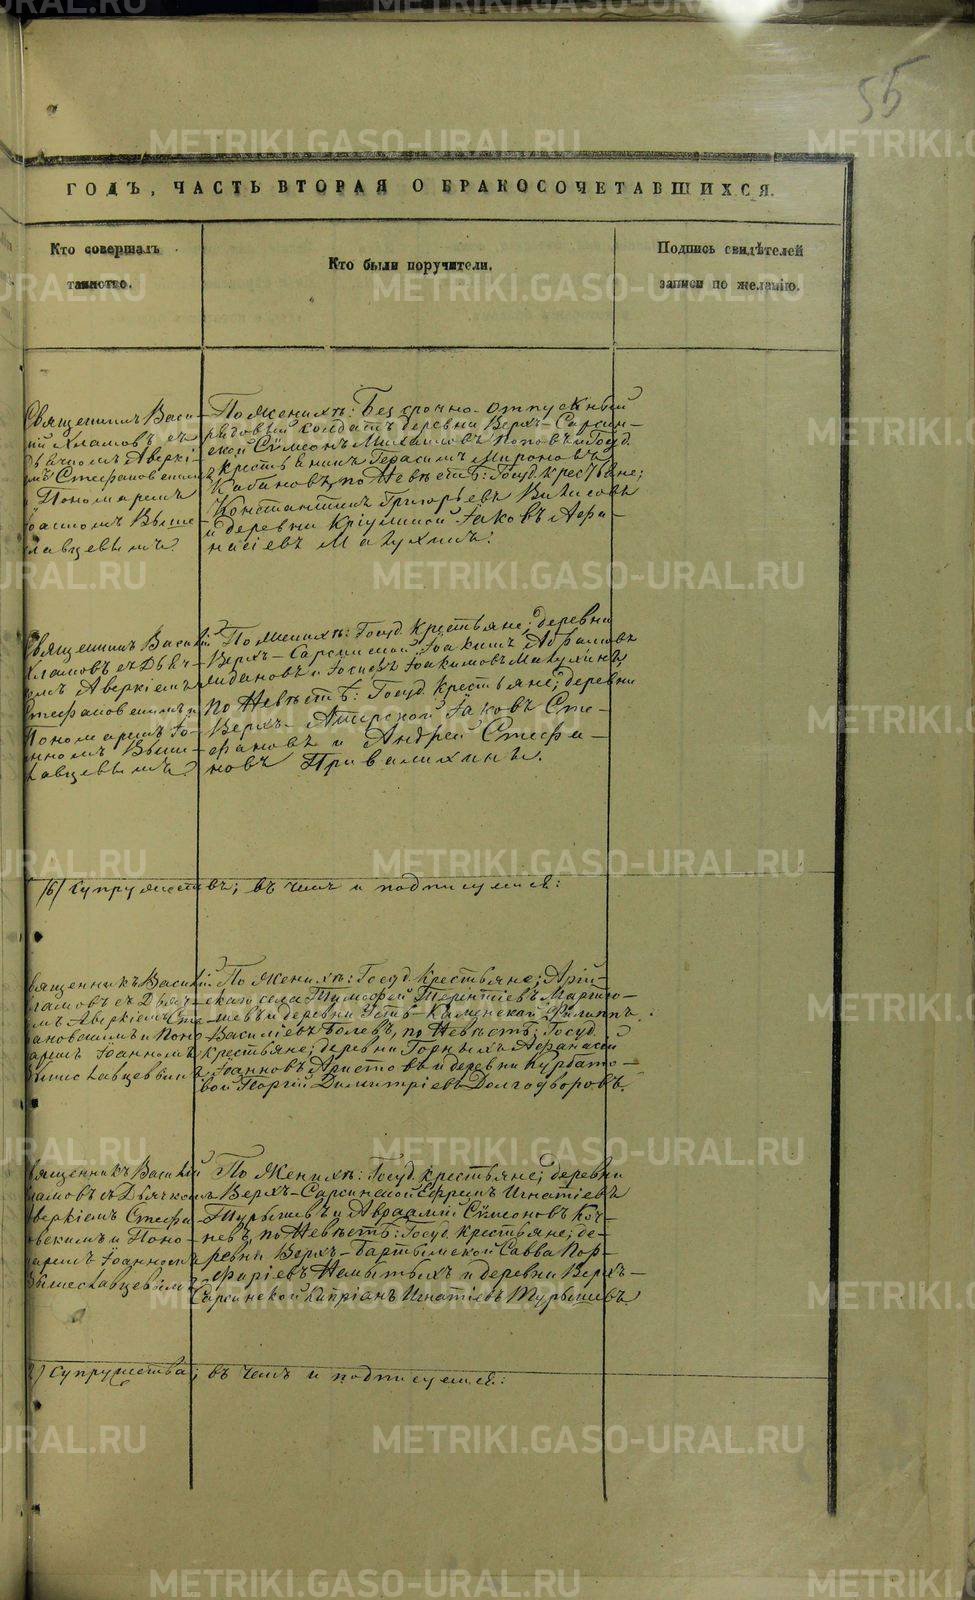 55
ГОДЪ, ЧАСТЬ ВТОРАЯ О БРАКОСОЧЕТАВШИХСЯ.
Кто совершалъ
таинство.
Кто были поручители.
Подпись свидѣтелей
записи по желанію.
Священникъ Васи-
лій Хламовъ съ
дьячкомъ Аверкі-
емъ Стефановскимъ
и Пономаремъ
Іоанномъ Выше-
славцевымъ.
По Женихѣ: Безсрочно-отпускный
рядовый солдатъ деревни Верхъ-Сарсин-
ской Сѵмеонъ Михаиловъ Поповъ и Госуд.
крестьянинъ Герасимъ Мироновъ
Кабановъ, по Невѣстѣ: Госуд. крестьяне;
Константинъ Григорьевъ
и деревни Іаковъ Афа-
насіевъ Махухинъ.
Священникъ Василій
Хламовъ съ Дьяч-
омъ Аверкіемъ
Стефановскимъ и
Пономаремъ Іо-
нномъ Выше-
лавцевымъ.
По Женихѣ: Госуд. крестьяне; деревни
Верхъ-Сарсинской Іоакимъ Абрамовъ
и Іоакимовъ Махухинъ,
по Невѣстѣ: Госуд. крестьяне; деревни
Верхъ- Іаковъ Сте-
фановъ и Андрей Стефа-
новъ Привалихины.
/6/ супружествъ; въ чемъ и подписуемся:
вященникъ Василій
ламовъ съ Дьяч-
мъ Аверкіемъ Сте-
ановскимъ и Поно-
аремъ Іоанномъ
Вышеславцевымъ
По Женихѣ: Госуд. крестьяне; Арій-
скаго села Тимофей Терентіевъ Мартю-
шевъ и деревни Усть-Каменской Филиппъ
Василіевъ Болевъ, по Невѣстѣ: Госуд.
крестьяне; деревни Горныхъ Афанасій
Іоанновъ Аристовъ и деревни Курбато-
вой Георгій Димитріевъ Долгодворовъ.
вященникъ Василій
ламовъ съ Дьячкомъ
веркіемъ Стефа-
овскимъ и Поно-
аремъ Іоанномъ
Вышеславцевымъ
По Женихѣ: Госуд. крестьяне; деревни
Верхъ-Сарсинской Ефремъ Игнатіевъ
Турышевъ и Авраамій Сѵмеоновъ Коч-
невъ, по Невѣстѣ: Госуд. крестьяне; де-
ревни Верхъ-Бартымской Савва Пор-
фиріевъ Немытыхъ и деревни Верхъ-
Сарсинской Кипріанъ Игнатіевъ Турышевъ.
2) супружества; въ чемъ и подписуемся:
METRIKI.GASO-URAL.RU